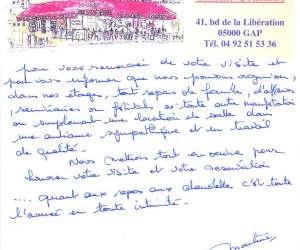 41, bd de la Libération
05000 GAP
Tél. 04 92 51 53 36
pour vous remercier de votre visite et
pour vous informer que nous pouvons
dans nos étages, tout repas de famille, d'affaires,
séminaires ou toute autre manifestation
ou simplement une location de salle dans
une ambiance sympathique et un travail
de qualité.
Nous mettons tout en oeuvre pour
honorer votre visite et votre réservation
.... quant aux repas aux chandelles c'est toute
l'année en toute intimité.